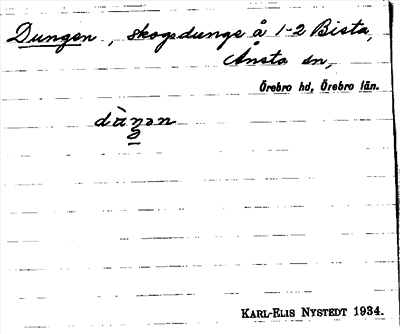 Dungen, skogsdunge å 1-2 Bista,
Ånsta sn,
Örebro hd, Örebro län.
dùŋən
KARL-ELIS NYSTEDT 1934.